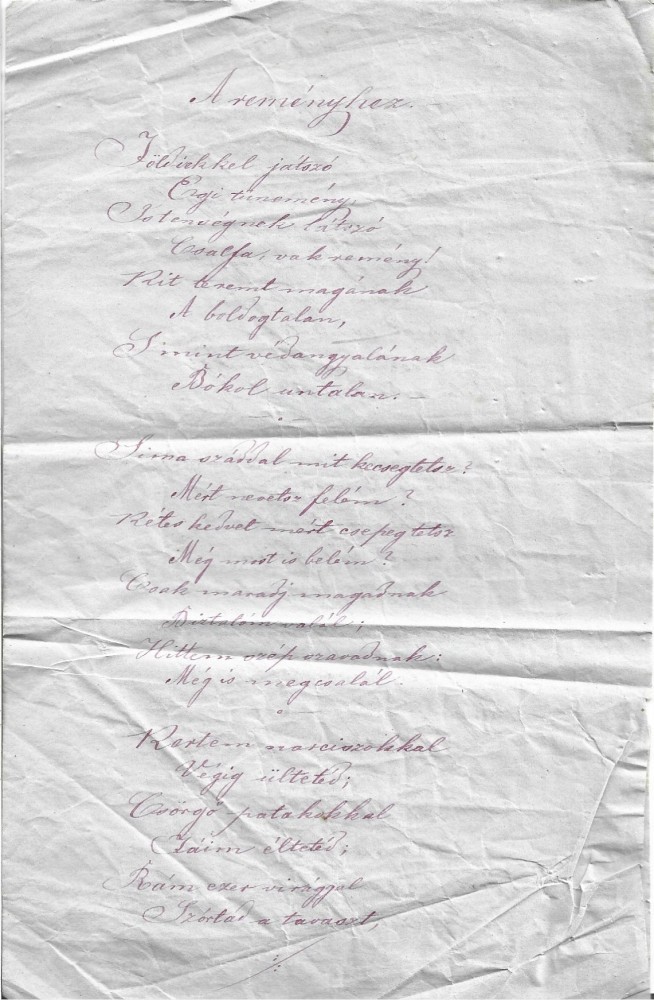 A reményhez. –
Földiekkel játszó
Égi tünemény,
Istenségnek látszó
Csalfa, vak remény!
Kit teremt magának
A boldogtalan,
S mint védangyalának
Bókol untalan. –
Sima száddal mit kecsegtetsz?
Mért nevetsz felém?
Kétes kedvet mért csepegtetsz
Még most is belém?
Csak maradj magadnak
Biztatóm valál;
Hittem szép szavadnak:
Még is megcsalál.
Kertem narciszokkal
Végig ültetéd;
Csörgő patakokkal
Fáim éltetéd;
Rám ezer virággal
Szórtad a tavaszt,